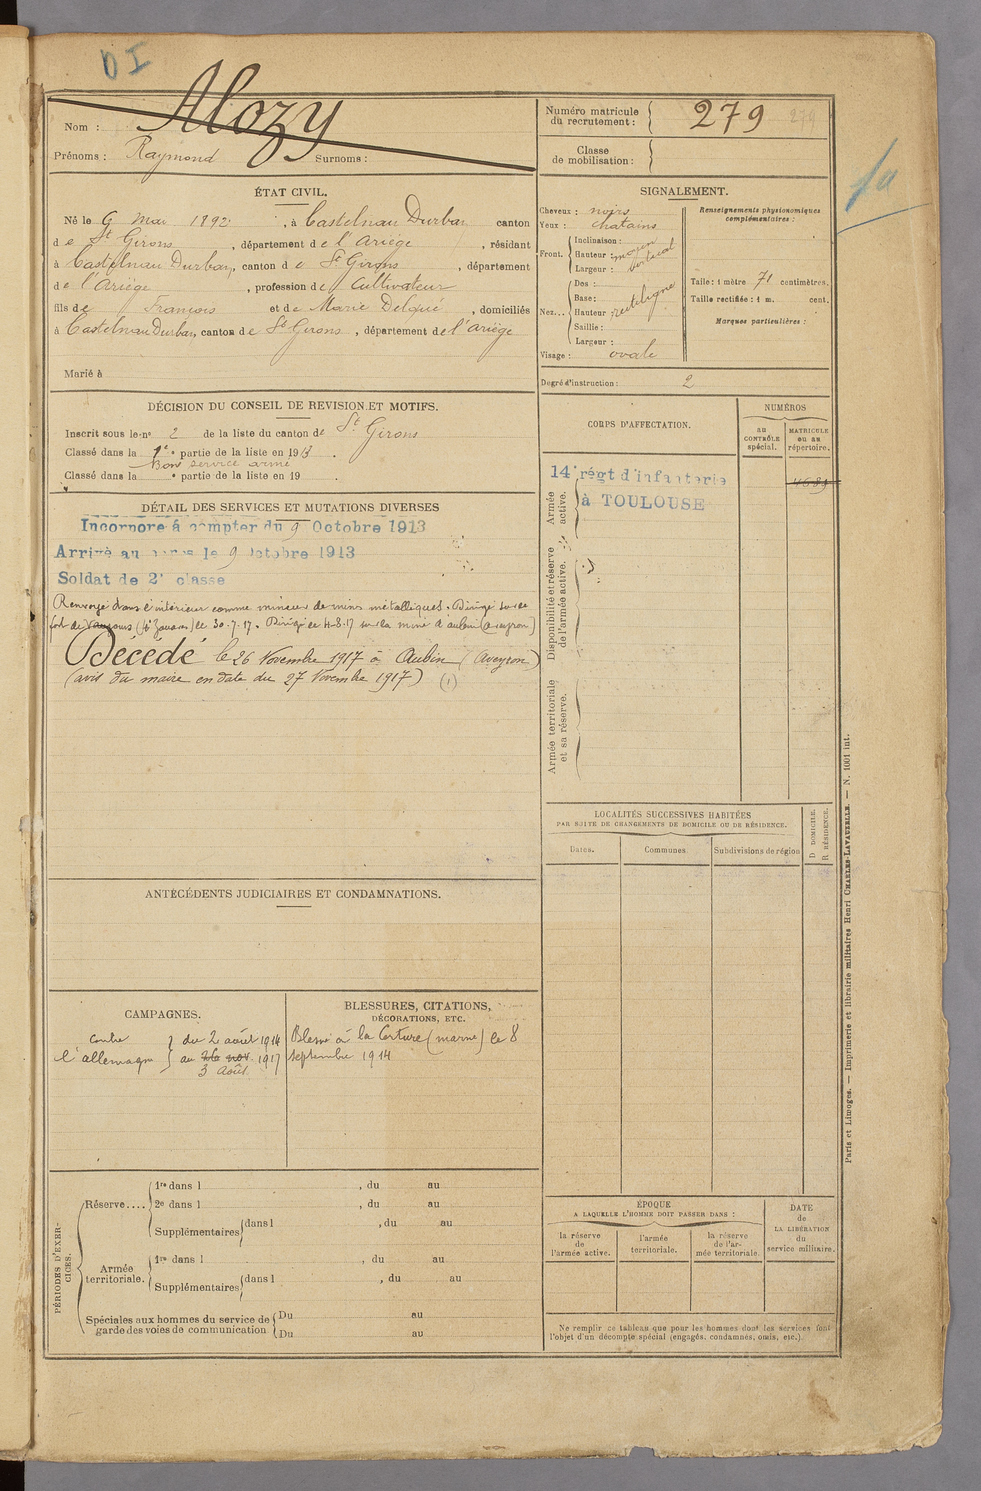 DI
Nom : Alozy
Prénoms : Raymond Surnoms :
Numéro matricule du recrutement : 279
279
Classe de mobilisation :
ÉTAT CIVIL.
Né le 9 Mai 1892, à Castelnau Durban canton
de St Girons, département de l'Ariége, résidant
à Castelnau Durban, canton de St Girons, département
de l'Ariége, profession de Cultivateur
fils de François et de Marie Delqué, domiciliés
à Castelnau Durban, canton de St Girons, département de l'Ariége
Marié à
SIGNALEMENT.
Cheveux : noirs
Yeux : chatains
Front.
Inclinaison :
Hauteur : moyen
Largeur : vertical
Nez...
Dos :
Base :
Hauteur : rectiligne
Saillie :
Largeur :
Visage : ovale
Renseignements physionomiques complémentaires :
Taille : 1 mètre 71 centimètres.
Taille rectifiée : 1 m. cent.
Marques particulières :
Degré d'instruction : 2
DÉCISION DU CONSEIL DE REVISION ET MOTIFS.
Inscrit sous le n° 2 de la liste du canton de St Girons
Classé dans la 1e partie de la liste en 1913.
Bon service armé
Classé dans la e partie de la liste en 19 .
CORPS D'AFFECTATION.
NUMÉROS
au CONTRÔLE spécial.
MATRICULE ou au répertoire.
Armée active.
14e régt d'infanterie
à TOULOUSE
Disponibilité et réserve de l'armée active.
Armée territoriale et sa réserve.
DÉTAIL DES SERVICES ET MUTATIONS DIVERSES
Incorporé à compter du 9 Octobre 1913
Arrivé au corps le 9 Octobre 1913
Soldat de 2e classe
Renvoyé dans l'intérieur comme mineur de mines métalliques. Dirigé sur le
fort de Vaujours (4e Zouaves) le 30-7-17. Dirigé le 4-8-17 sur la mine d'aubin (aveyron)
Décédé le 26 Novembre 1917 à Aubin (Aveyron)
(avis du maire en date du 27 Novembre 1917) (1)
LOCALITÉS SUCCESSIVES HABITÉES
PAR SUITE DE CHANGEMENTS DE DOMICILE OU DE RÉSIDENCE.
Dates.
Communes.
Subdivisions de région
D DOMICILE.
R RÉSIDENCE.
ANTÉCÉDENTS JUDICIAIRES ET CONDAMNATIONS.
CAMPAGNES.
contre l'allemagne } du 2 août 1914
au 26 nov. 1917
3 Août
BLESSURES, CITATIONS,
DÉCORATIONS, ETC.
Blessé à la Certure (marne) le 8
septembre 1914
PÉRIODES D'EXERCICES.
Réserve....
1re dans l , du au
2e dans l , du au
Supplémentaires dans l , du au
Armée territoriale.
1re dans l , du au
Supplémentaires dans l , du au
Spéciales aux hommes du service de garde des voies de communication
Du au
Du au
ÉPOQUE
A LAQUELLE L'HOMME DOIT PASSER DANS :
la réserve de l'armée active.
l'armée territoriale.
la réserve de l'armée territoriale.
DATE de LA LIBÉRATION du service militaire.
Ne remplir ce tableau que pour les hommes dont les services font
l'objet d'un décompte spécial (engagés, condamnés, omis, etc.).
Paris et Limoges. — Imprimerie et librairie militaires Henri CHARLES-LAVAUZELLE. — N. 1001 int.